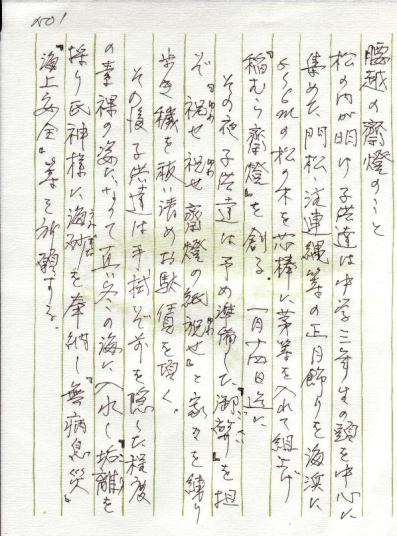 NO1
腰越の齋燈のこと
松の内が明け子供達は中学三年生の頭を中心に
集めた門松注連縄等の正月飾りを海浜に
5〜6mの松の木を芯棒に茅等を入れて組上げ
『稲むら齋燈』を創る。一月十四日迄に
その夜子供達は予め準備した『御幣』を担
ぎ『祝せ祝せ齋燈の紙祝せ』と家々を練り
歩き穢を祓い清めお駄賃を頂く。
その後子供達は手拭で前を隠した程度
の素裸の姿になって真冬の海に入水し『垢離』を
採り氏神様に海砂を奉納し『無病息災』
『海上安全』等を祈願する。